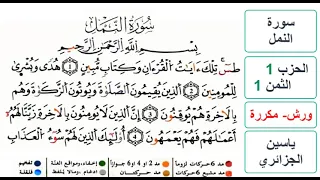 سُورَةُ النَّمْلِ
بِسْمِ اللَّهِ الرَّحْمَٰنِ الرَّحِيمِ
طسٓ تِلْكَ ءَايَٰتُ الْقُرْءَانِ وَكِتَابٍ مُّبِينٍ ۝١ هُدًى وَبُشْرَىٰ
لِلْمُومِنِينَ ۝٢ الَّذِينَ يُقِيمُونَ الصَّلَوٰةَ وَيُوتُونَ الزَّكَوٰةَ وَهُم
بِالْأَخِرَةِ هُمْ يُوقِنُونَ ۝٣ إِنَّ الَّذِينَ لَا يُومِنُونَ بِالْأَخِرَةِ زَيَّنَّا لَهُمُ
أَعْمَٰلَهُمْ فَهُمْ يَعْمَهُونَ ۝٤ أُوْلَٰٓئِكَ الَّذِينَ لَهُمْ سُوٓءُ الْعَذَابِ
سورة
النمل
الحزب 1
الثمن 1
ورش- مكررة
ياسين
الجزائري
تفخيم
قلقلة